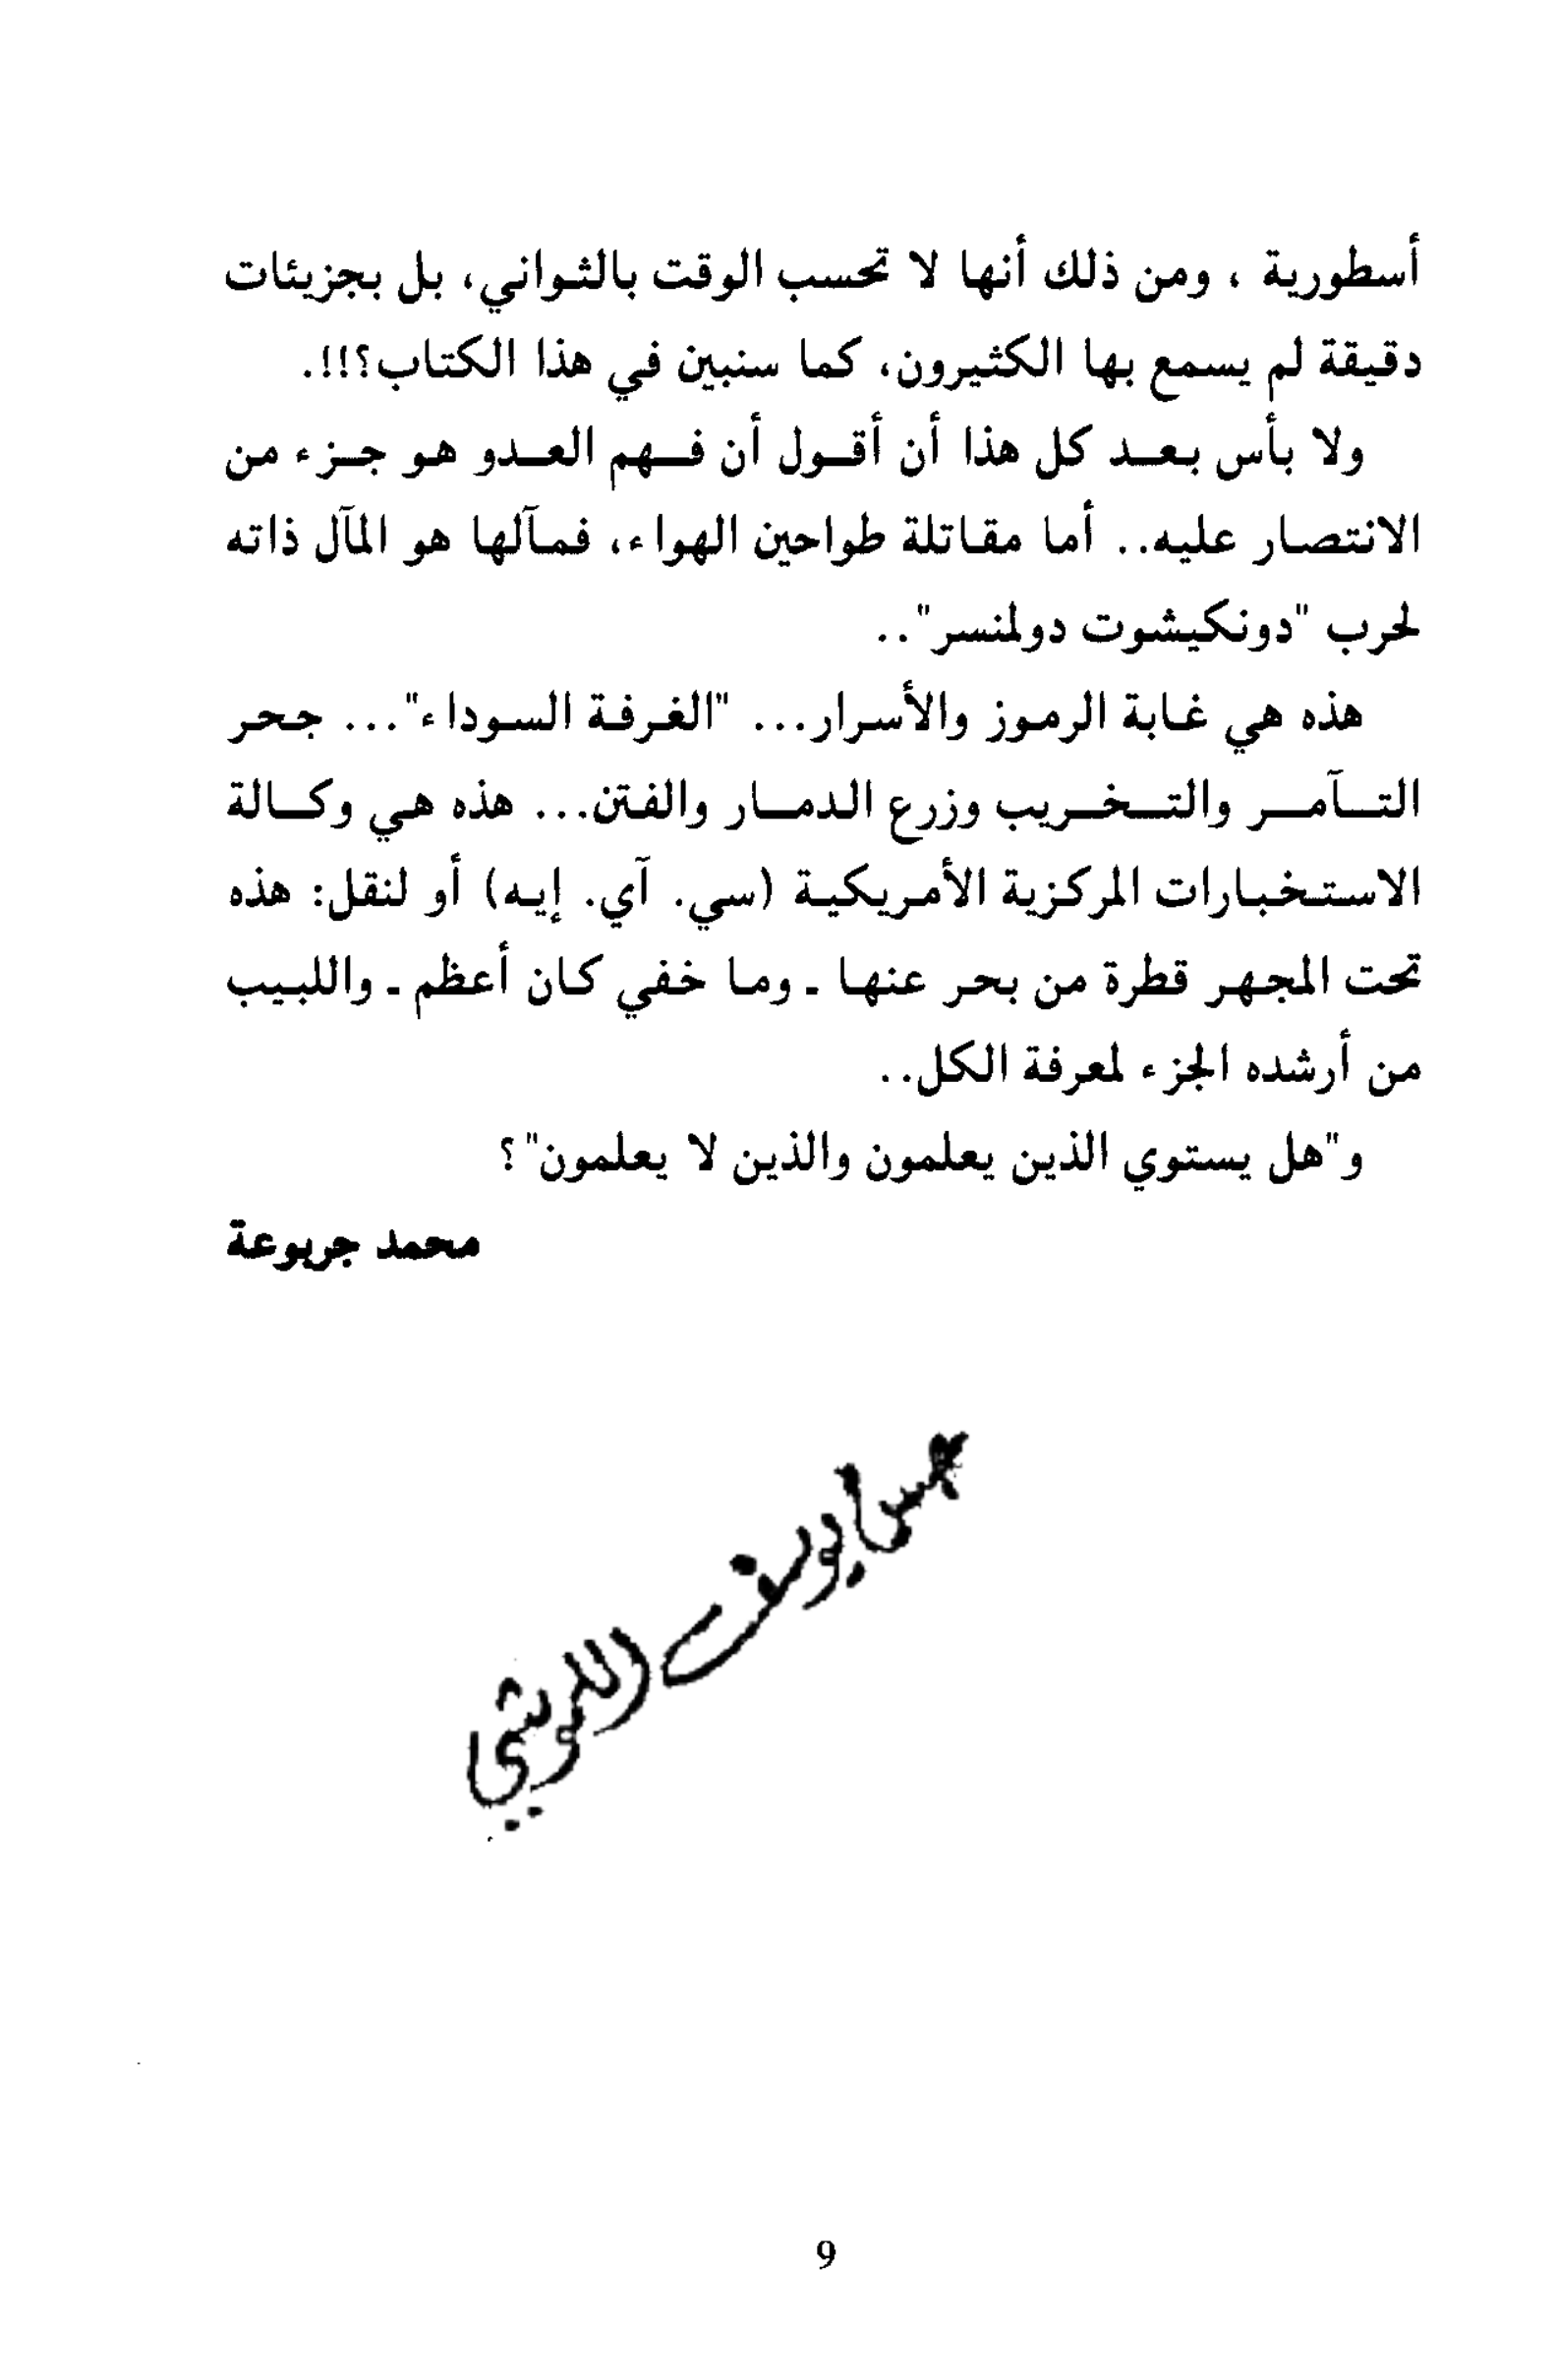 أسطورية ، ومن ذلك أنها لا تحسب الوقت بالثواني، بل بجزيئات
دقيقة لم يسمع بها الكثيرون، كما سنبين في هذا الكتاب؟!!.
ولا بأس بعد كل هذا أن أقول أن فهم العدو هو جزء من
الانتصار عليه.. أما مقاتلة طواحين الهواء، فمآلها هو المآل ذاته
لحرب "دونكيشوت دولمنسر"..
هذه هي غابة الرموز والأسرار... "الغرفة السوداء"... جحر
التآمر والتخريب وزرع الدمار والفتن... هذه هي وكالة
الاستخبارات المركزية الأمريكية (سي. آي. إيه) أو لنقل: هذه
تحت المجهر قطرة من بحر عنها ـ وما خفي كان أعظم ـ واللبيب
من أرشده الجزء لمعرفة الكل..
و"هل يستوي الذين يعلمون والذين لا يعلمون"؟
محمد جربوعة
يوسف
9